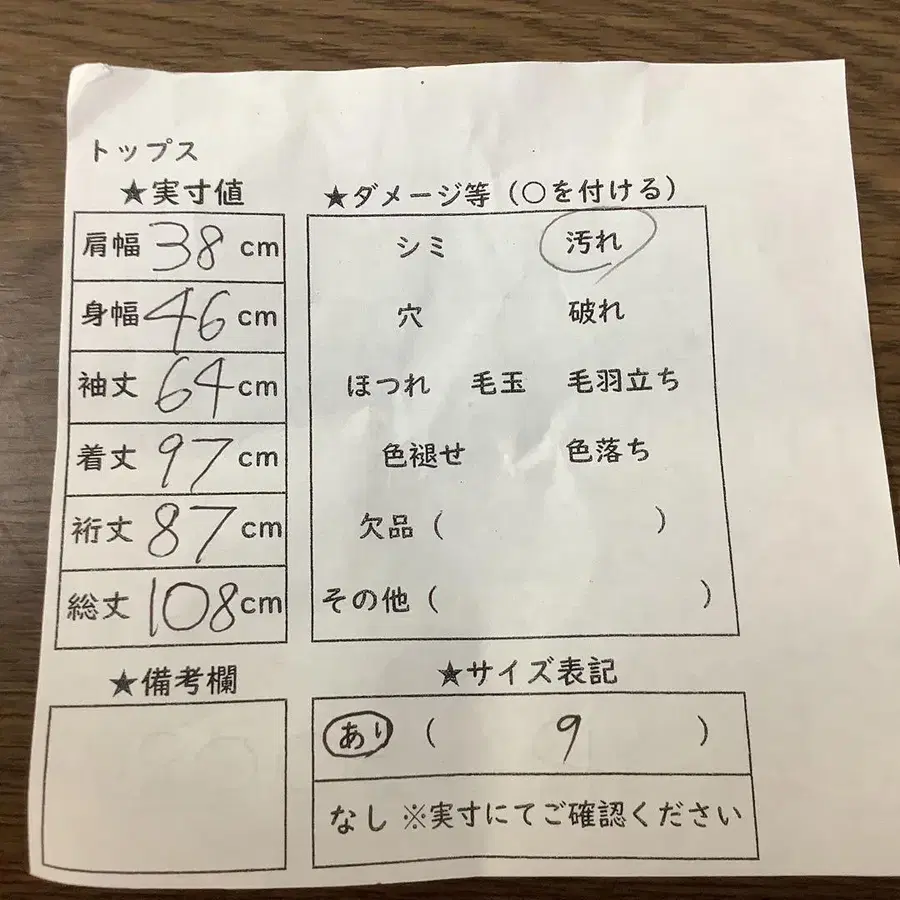 トップス
★実寸値
肩幅 38 cm
身幅 46 cm
袖丈 64 cm
着丈 97 cm
裄丈 87 cm
総丈 108 cm
★ダメージ等（○を付ける）
シミ 汚れ
穴 破れ
ほつれ 毛玉 毛羽立ち
色褪せ 色落ち
欠品（ ）
その他（ ）
★備考欄
★サイズ表記
あり（ 9 ）
なし ※実寸にてご確認ください